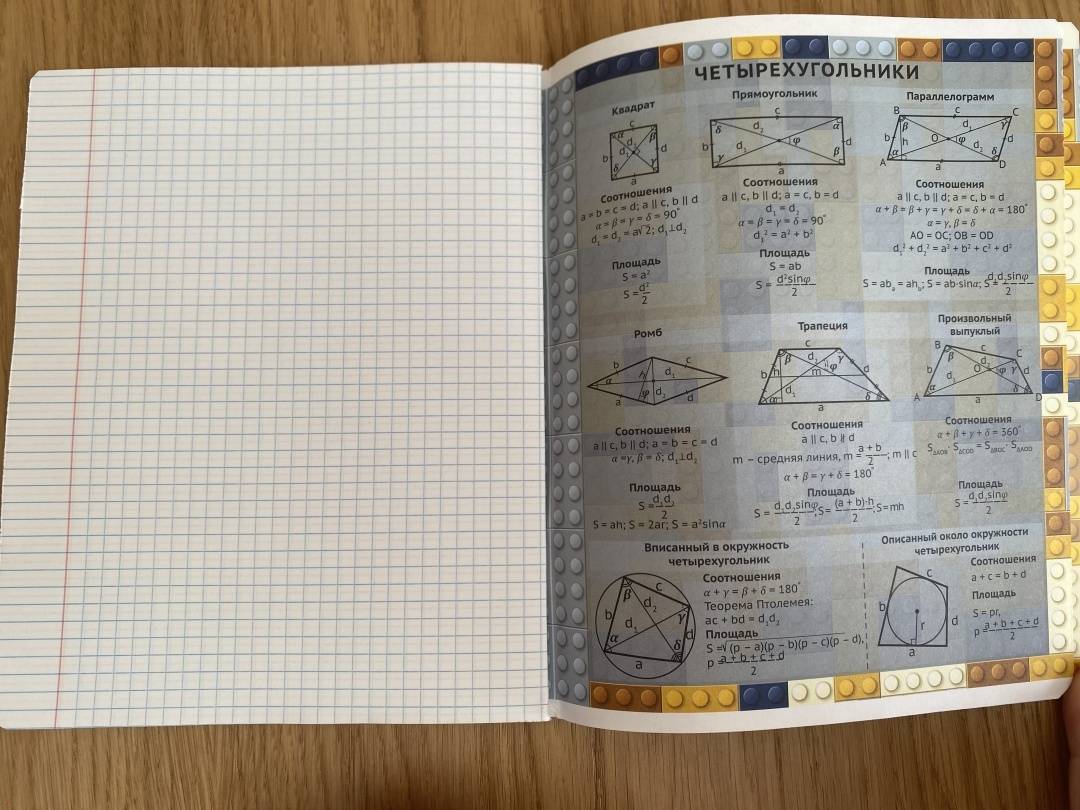 ЧЕТЫРЕХУГОЛЬНИКИ
Квадрат
c
b
d
a
Соотношения
a = b = c = d; a || c, b || d
α = β = γ = δ = 90°
d₁ = d₂ = a√2; d₁⊥d₂
Площадь
S = a²
S = d²/2
Прямоугольник
c
b
d
a
Соотношения
a || c, b || d; a = c, b = d
d₁ = d₂
α = β = γ = δ = 90°
d₁² = a² + b²
Площадь
S = ab
S = d²sinφ/2
Параллелограмм
B
c
C
b
h
O
d
A
a
D
Соотношения
a || c, b || d; a = c, b = d
α + β = β + γ = γ + δ = δ + α = 180°
α = γ, β = δ
AO = OC; OB = OD
d₁² + d₂² = a² + b² + c² + d²
Площадь
S = ahₐ = ah_b; S = ab·sinα; S = d₁d₂sinφ/2
Ромб
b
c
a
d
Соотношения
a || c, b || d; a = b = c = d
α = γ, β = δ; d₁⊥d₂
Площадь
S = d₁d₂/2
S = ah; S = 2ar; S = a²sinα
Трапеция
c
b
h
m
d
a
Соотношения
a || c, b ∦ d
m – средняя линия, m = a + b/2; m || c
α + β = γ + δ = 180°
Площадь
S = d₁d₂sinφ/2; S = (a + b)·h/2; S = mh
Произвольный
выпуклый
B
c
C
b
O
d
A
a
D
Соотношения
α + β + γ + δ = 360°
S_ΔAOB · S_ΔCOD = S_ΔBOC · S_ΔAOD
Площадь
S = d₁d₂sinφ/2
Вписанный в окружность
четырехугольник
c
b
d
a
Соотношения
α + γ = β + δ = 180°
Теорема Птолемея:
ac + bd = d₁d₂
Площадь
S = √(p – a)(p – b)(p – c)(p – d),
p = a + b + c + d/2
Описанный около окружности
четырехугольник
c
b
d
r
a
Соотношения
a + c = b + d
Площадь
S = pr,
p = a + b + c + d/2